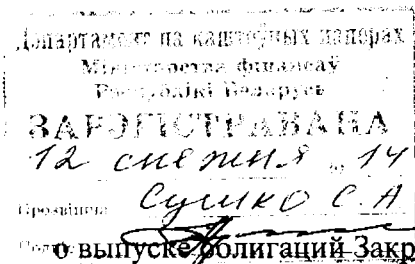 Дэпартамент па каштоўных паперах
Міністэрства фінансаў
Рэспублікі Беларусь
ЗАРЭГІСТРАВАНА
12 снежня 14
Прозвішча Сушко С.А
о выпуске облигаций Закр